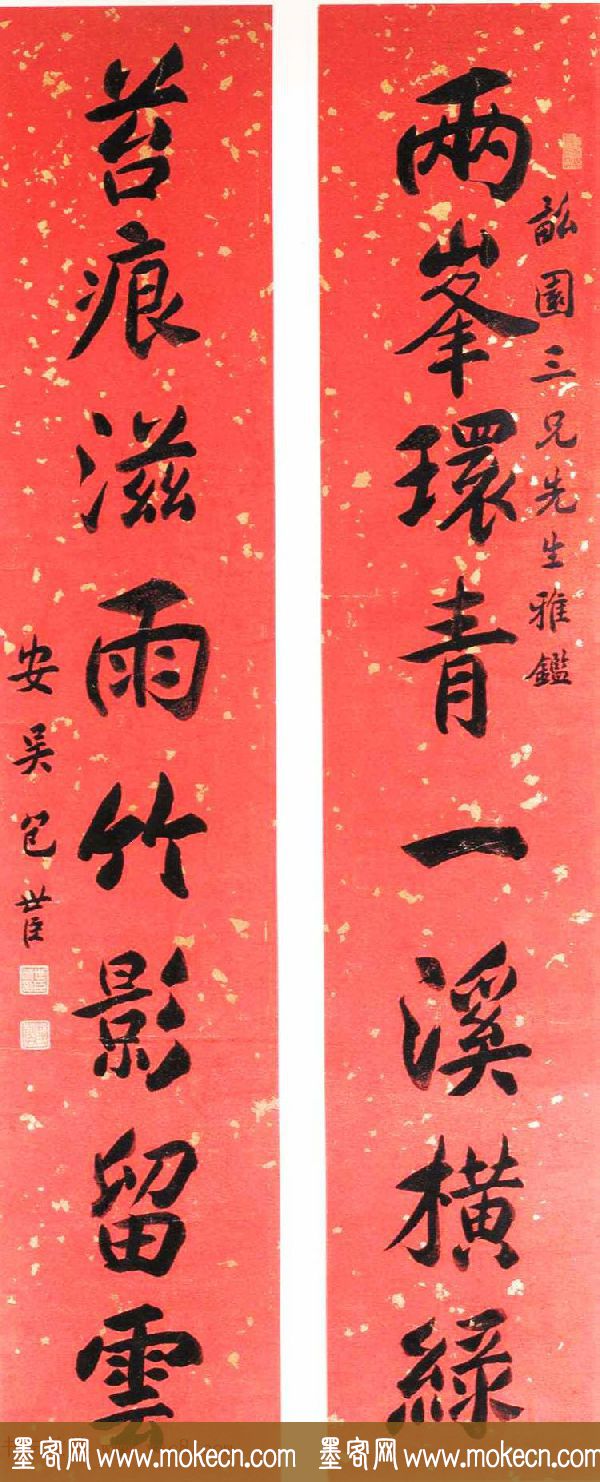 園三兄先生雅鑑
兩峯環青一溪橫綠
苔痕滋雨竹影留雲
安吳包世臣
墨客网 www.mokecn.com
墨客网 www.mokecn.com